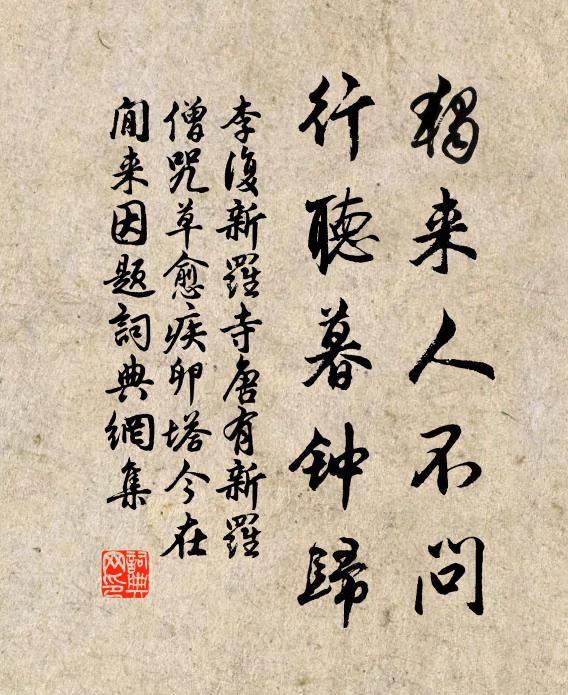 獨来人不问
行聽暮钟歸
李復新羅寺唐有新羅
僧咒草愈疾卵塔今在
閒来因題詞典網集
詞典
网印